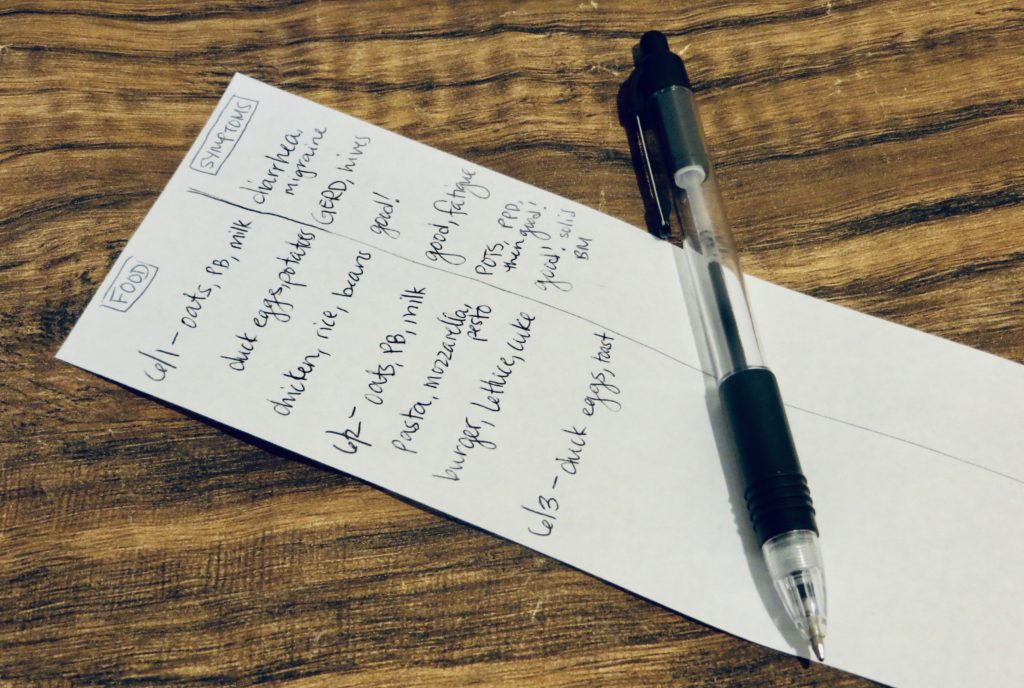 FOOD
6/1 - oats, PB, milk
duck eggs, potatoes
chicken, rice, beans
6/2 - oats, PB, milk
pasta, mozzarella,
pesto
burger, lettuce, cuke
6/3 - duck eggs, toast
SYMPTOMS
diarrhea
migraine
GERD, hives
good!
good, fatigue
POTS, PPD,
then good!
good! solid
BM